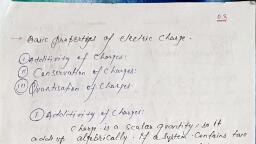 03
→ Basic properties of electric charge.
(i) Additivity of charges:
(ii) Conservation of charges:
(iii) Quantisation of charges:
(i) Additivity of charges:
charge is a scalar quantity, so it
add up algebrically. If a system contains two